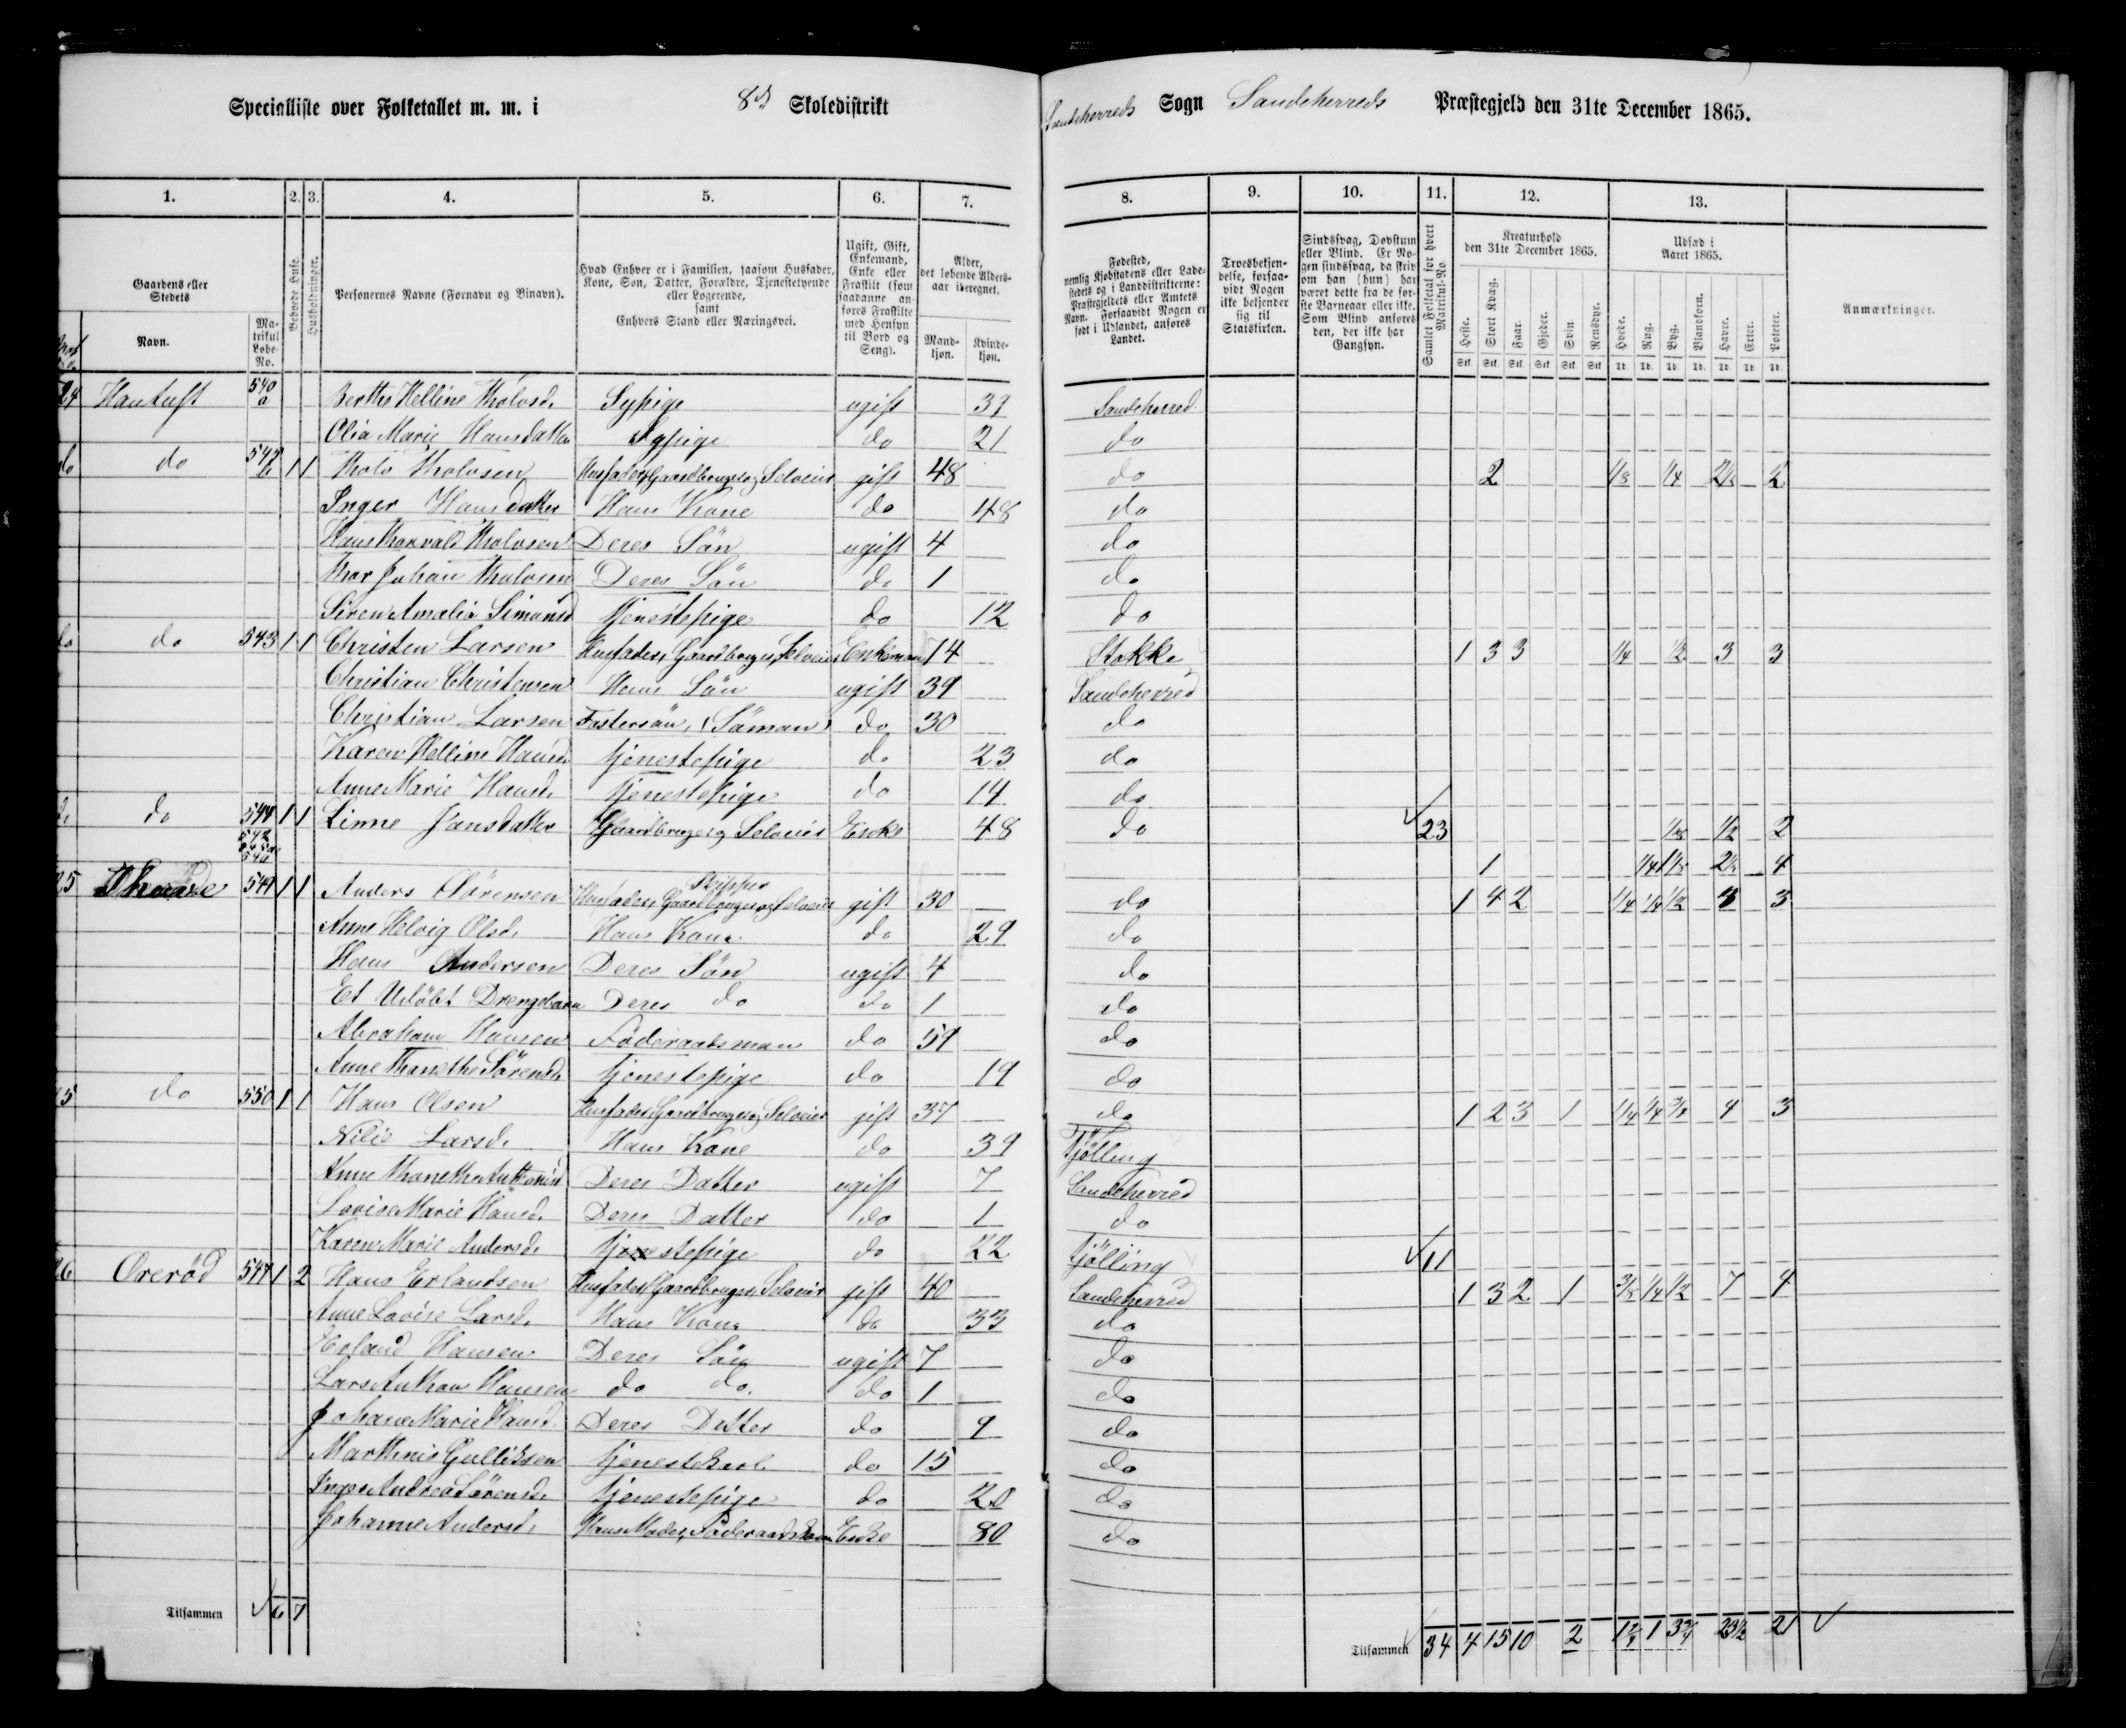 Specialliste over Folketallet m. m. i 8de Skoledistrikt Sandeherreds Sogn Sandeherreds Præstegjeld den 31te December 1865.
1. 2. 3. 4. 5. 6. 7. 8. 9. 10. 11. 12. 13.
Gaardens eller Stedets
Navn.
Matrikul Løbe-No.
Beboede Huse.
Husholdninger.
Personernes Navne (Fornavn og Binavn).
Hvad Enhver er i Familien, saasom Husfader, Kone, Søn, Datter, Forældre, Tjenestetyende eller Logerende, samt Enhvers Stand eller Næringsvei.
Ugift, Gift, Enkemand, Enke eller Fraskilt (som saadanne anføres Fraskilte med Hensyn til Bord og Seng).
Alder, det løbende Alders-aar iberegnet.
Mand-kjøn. Kvinde-kjøn.
Fødested, nemlig Kjøbstadens eller Ladestedets og i Landdistrikterne: Præstegjeldets eller Amtets Navn. Forsaavidt Nogen er født i Udlandet, anføres Landet.
Troesbekjendelse, forsaavidt Nogen ikke bekjender sig til Statskirken.
Sindssvag, Døvstum eller Blind. Er Nogen sindssvag, da skrives om han (hun) har været dette fra de første Barneaar eller ikke. Som Blind anføres den, der ikke har Gangsyn.
Samlet Folketal for hvert Matrikul-No.
Kreaturhold den 31te December 1865.
Heste. Stort Kvæg. Faar. Gjeder. Svin. Rensdyr.
Udsæd i Aaret 1865.
Hvede. Rug. Byg. Blandkorn. Havre. Erter. Poteter.
Anmærkninger.
24 Hautuft 540 a Berthe Helline Tholvsd. Sypige ugift 37 Sandeherred
Olia Marie Hansdatter Sypige do 21 do
do do 542 b 1 1 Tholv Tholvsen Husfader, Gaardbruger og Selveier gift 48 do 2 1/8 1/4 2 1/2 2
Inger Hansdatter Hans Kone do 48 do
Hans Thorvald Tholvsen Deres Sön ugift 4 do
Thor Johan Tholvsen Deres Sön do 1 do
Siren Amalia Simonsd tjenestepige do 12 do
do do 543 1 1 Christen Larsen Husfader, Gaardbruger, Selveier Enkeman 74 Stokke 1 3 3 1/4 1/2 3 3
Christian Christensen Hans Sön ugift 39 Sandeherred
Christian Larsen Fostersön, (Söman) do 30 do
Karen Helline Hansd. tjenestepige do 23 do
Anne Marie Hansd. tjenestepige do 14 do
do 544 1 1 Linne Jansdatter Gaardbruger og Selveier Enke 48 do 23 1/8 1/2 2
1 1/4 1 1/2 2 1/2 4
25 549 1 1 Anders Sörensen Husfader, Skipper Gaardbruger og Selveier gift 30 do 1 4 2 1/4 1/4 1/2 3
Anne Helvig Olsd. Hans Kone do 29 do
Hans Andersen Deres Sön ugift 4 do
Et Udöbt Drengebarn Deres do do 1 do
Abraham Hansen Föderaadsman do 59 do
Anne Thorethe Sörensd. tjenestepige do 19 do
25 do 550 1 1 Hans Olsen Husfader, Gaardbruger og Selveier gift 37 do 1 2 3 1 1/4 1/4 3/4 4 3
Nilie Larsd. Hans Kone do 39 Tjölling
Deres Datter ugift 7 Sandeherred
Lovise Marie Hansd. Deres Datter do 1 do
Karen Marie Andersd. tjenestepige do 22 Tjölling 11
26 Orerød 547 1 2 Hans Erlandsen Husfader, Gaardbruger, Selveier gift 40 Sandeherred 1 3 2 1 3/8 1/4 1/2 7 4
Anne Lovise Larsd. Hans Kone do 33 do
Erland Hansen Deres Sön ugift 7 do
Lars Anthon Hansen do do. do 1 do
Johane Marie Hansd. Deres Datter do 9 do
Marthinis Gulliksen tjenestekarl do 15 do
Inger Andrea Sörensd. tjenestepige do 20 do
Johanne Andersd. Hans Moder, Föderaadskone Enke 80 do
Tilsammen 6 7 Tilsammen 34 4 15 10 2 1 3 3/4 23 1/2 21